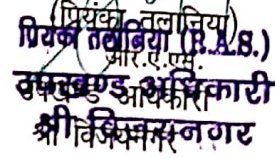 (प्रियंका तलानिया)
प्रियंका तलानिया (R.A.S.)
आर.ए.एस.
उपखण्ड अधिकारी
उपखण्ड अधिकारी
श्री विजयनगर
श्री विजयनगर